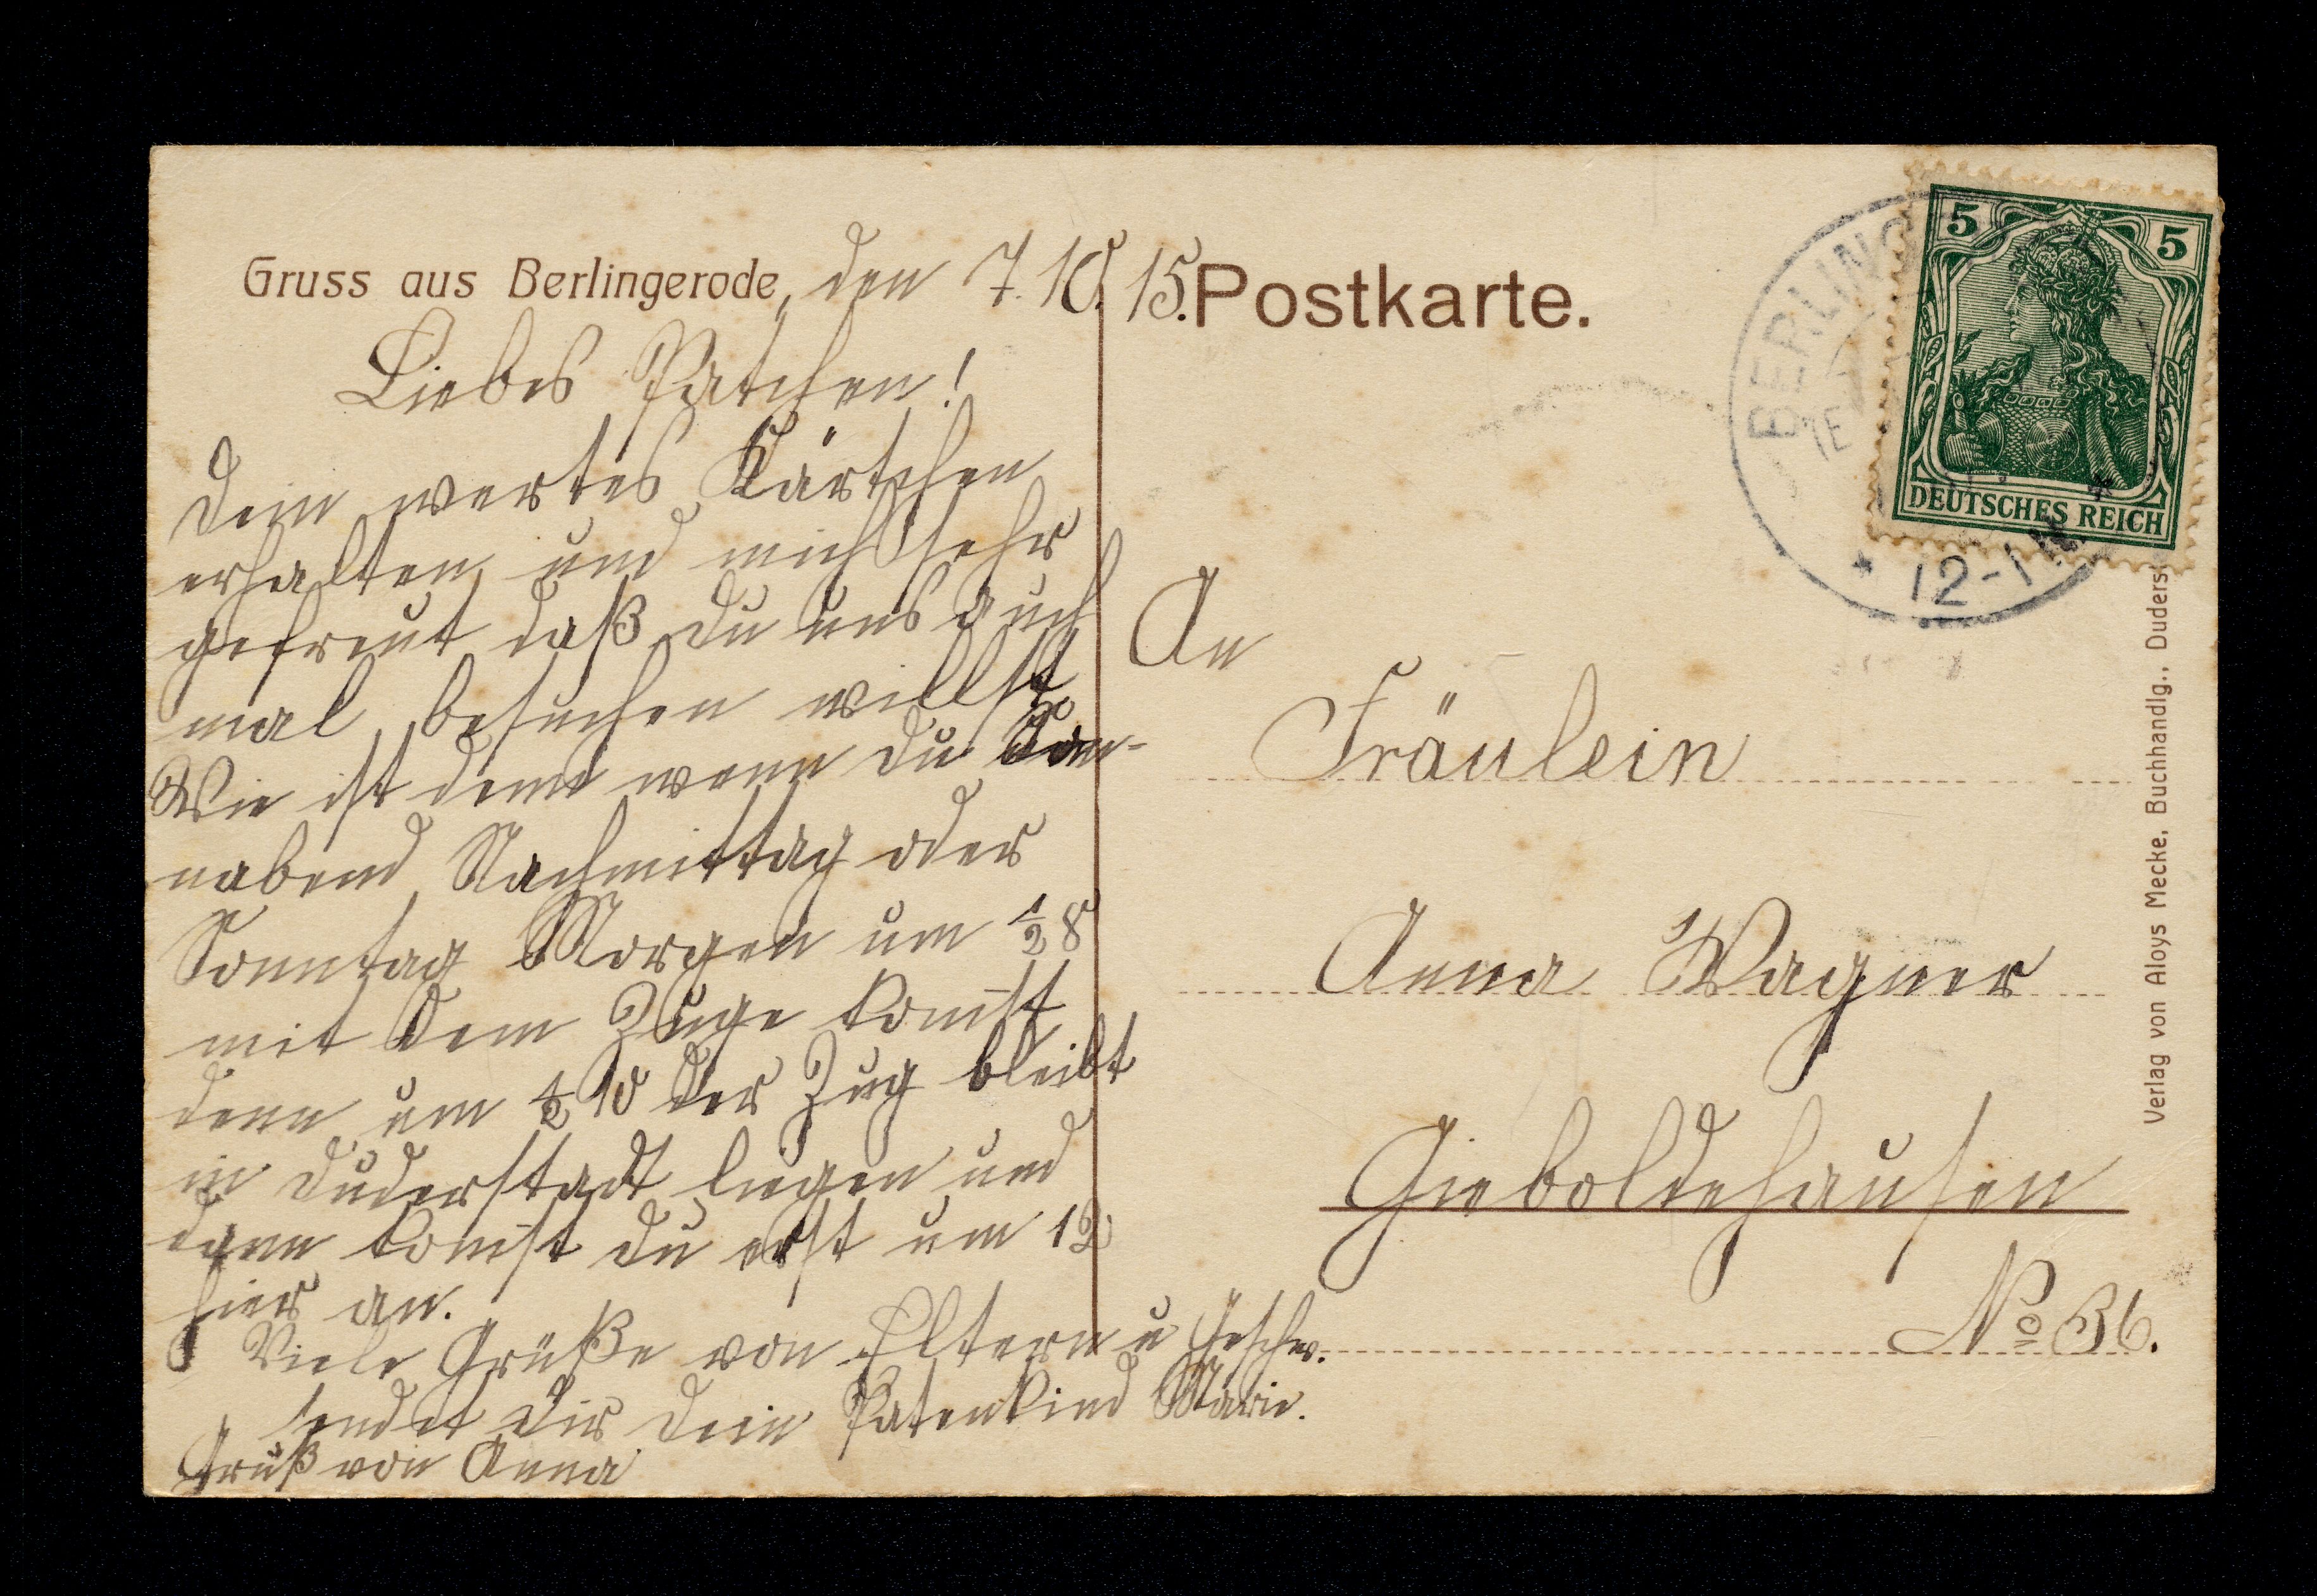 Gruss aus Berlingerode, den 7.10.15.
Liebes Patchen!
Dein wertes Kärtchen
erhalten und mich sehr
gefreut daß Du uns auch
mal besuchen willst
Wie ist denn wenn Du Son-
nabend Nachmittag oder
Sonntag Morgen um ½ 8
mit dem Zuge kom̄st
denn um ½ 10 der Zug bleibt
in Duderstadt liegen und
dann kom̄st Du erst um 12
hier an.
Viele Grüße von Eltern u Geschw.
sendet Dir Dein Patenkind Marie.
Gruß von Anna
Postkarte.
BERLING
12-1 N.
5 5
DEUTSCHES REICH
An
Fräulein
Anna Wagner
Gieboldehausen
No 36.
Verlag von Aloys Mecke, Buchhandlg., Duders